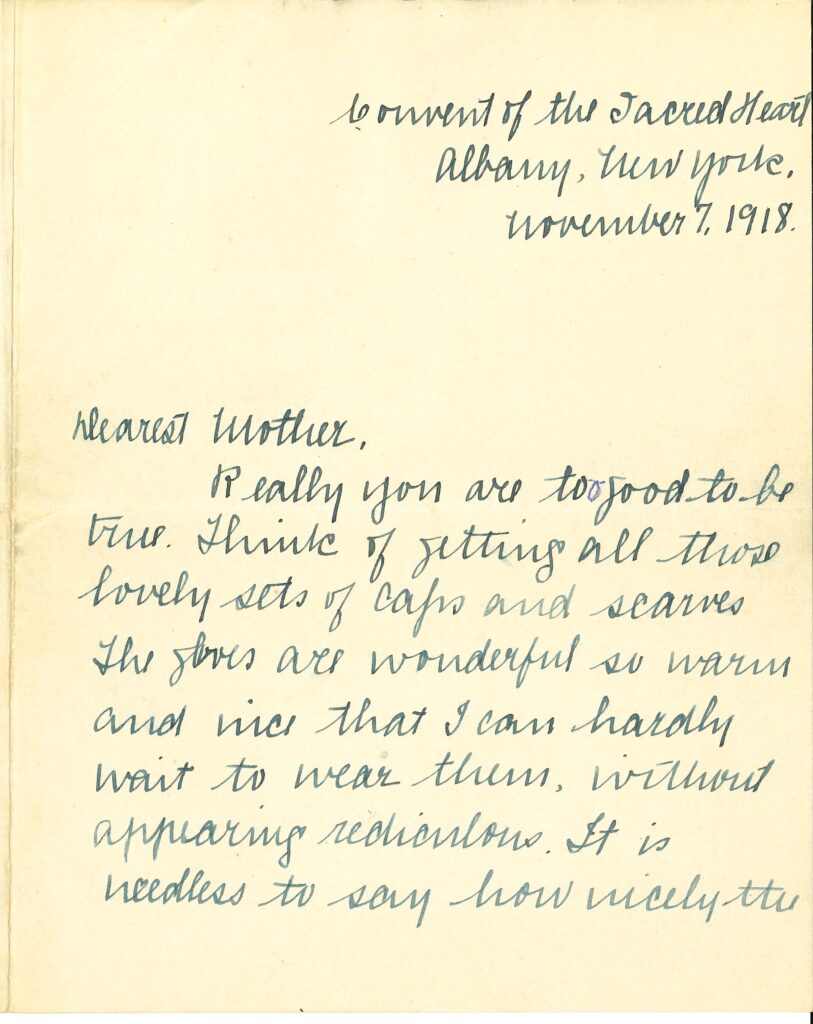 Convent of the Sacred Heart
Albany, New York.
November 7, 1918.
Dearest Mother,
Really you are too good to be
true. Think of getting all those
lovely sets of caps and scarves
The gloves are wonderful so warm
and nice that I can hardly
wait to wear them, without
appearing rediculous. It is
needless to say how nicely the